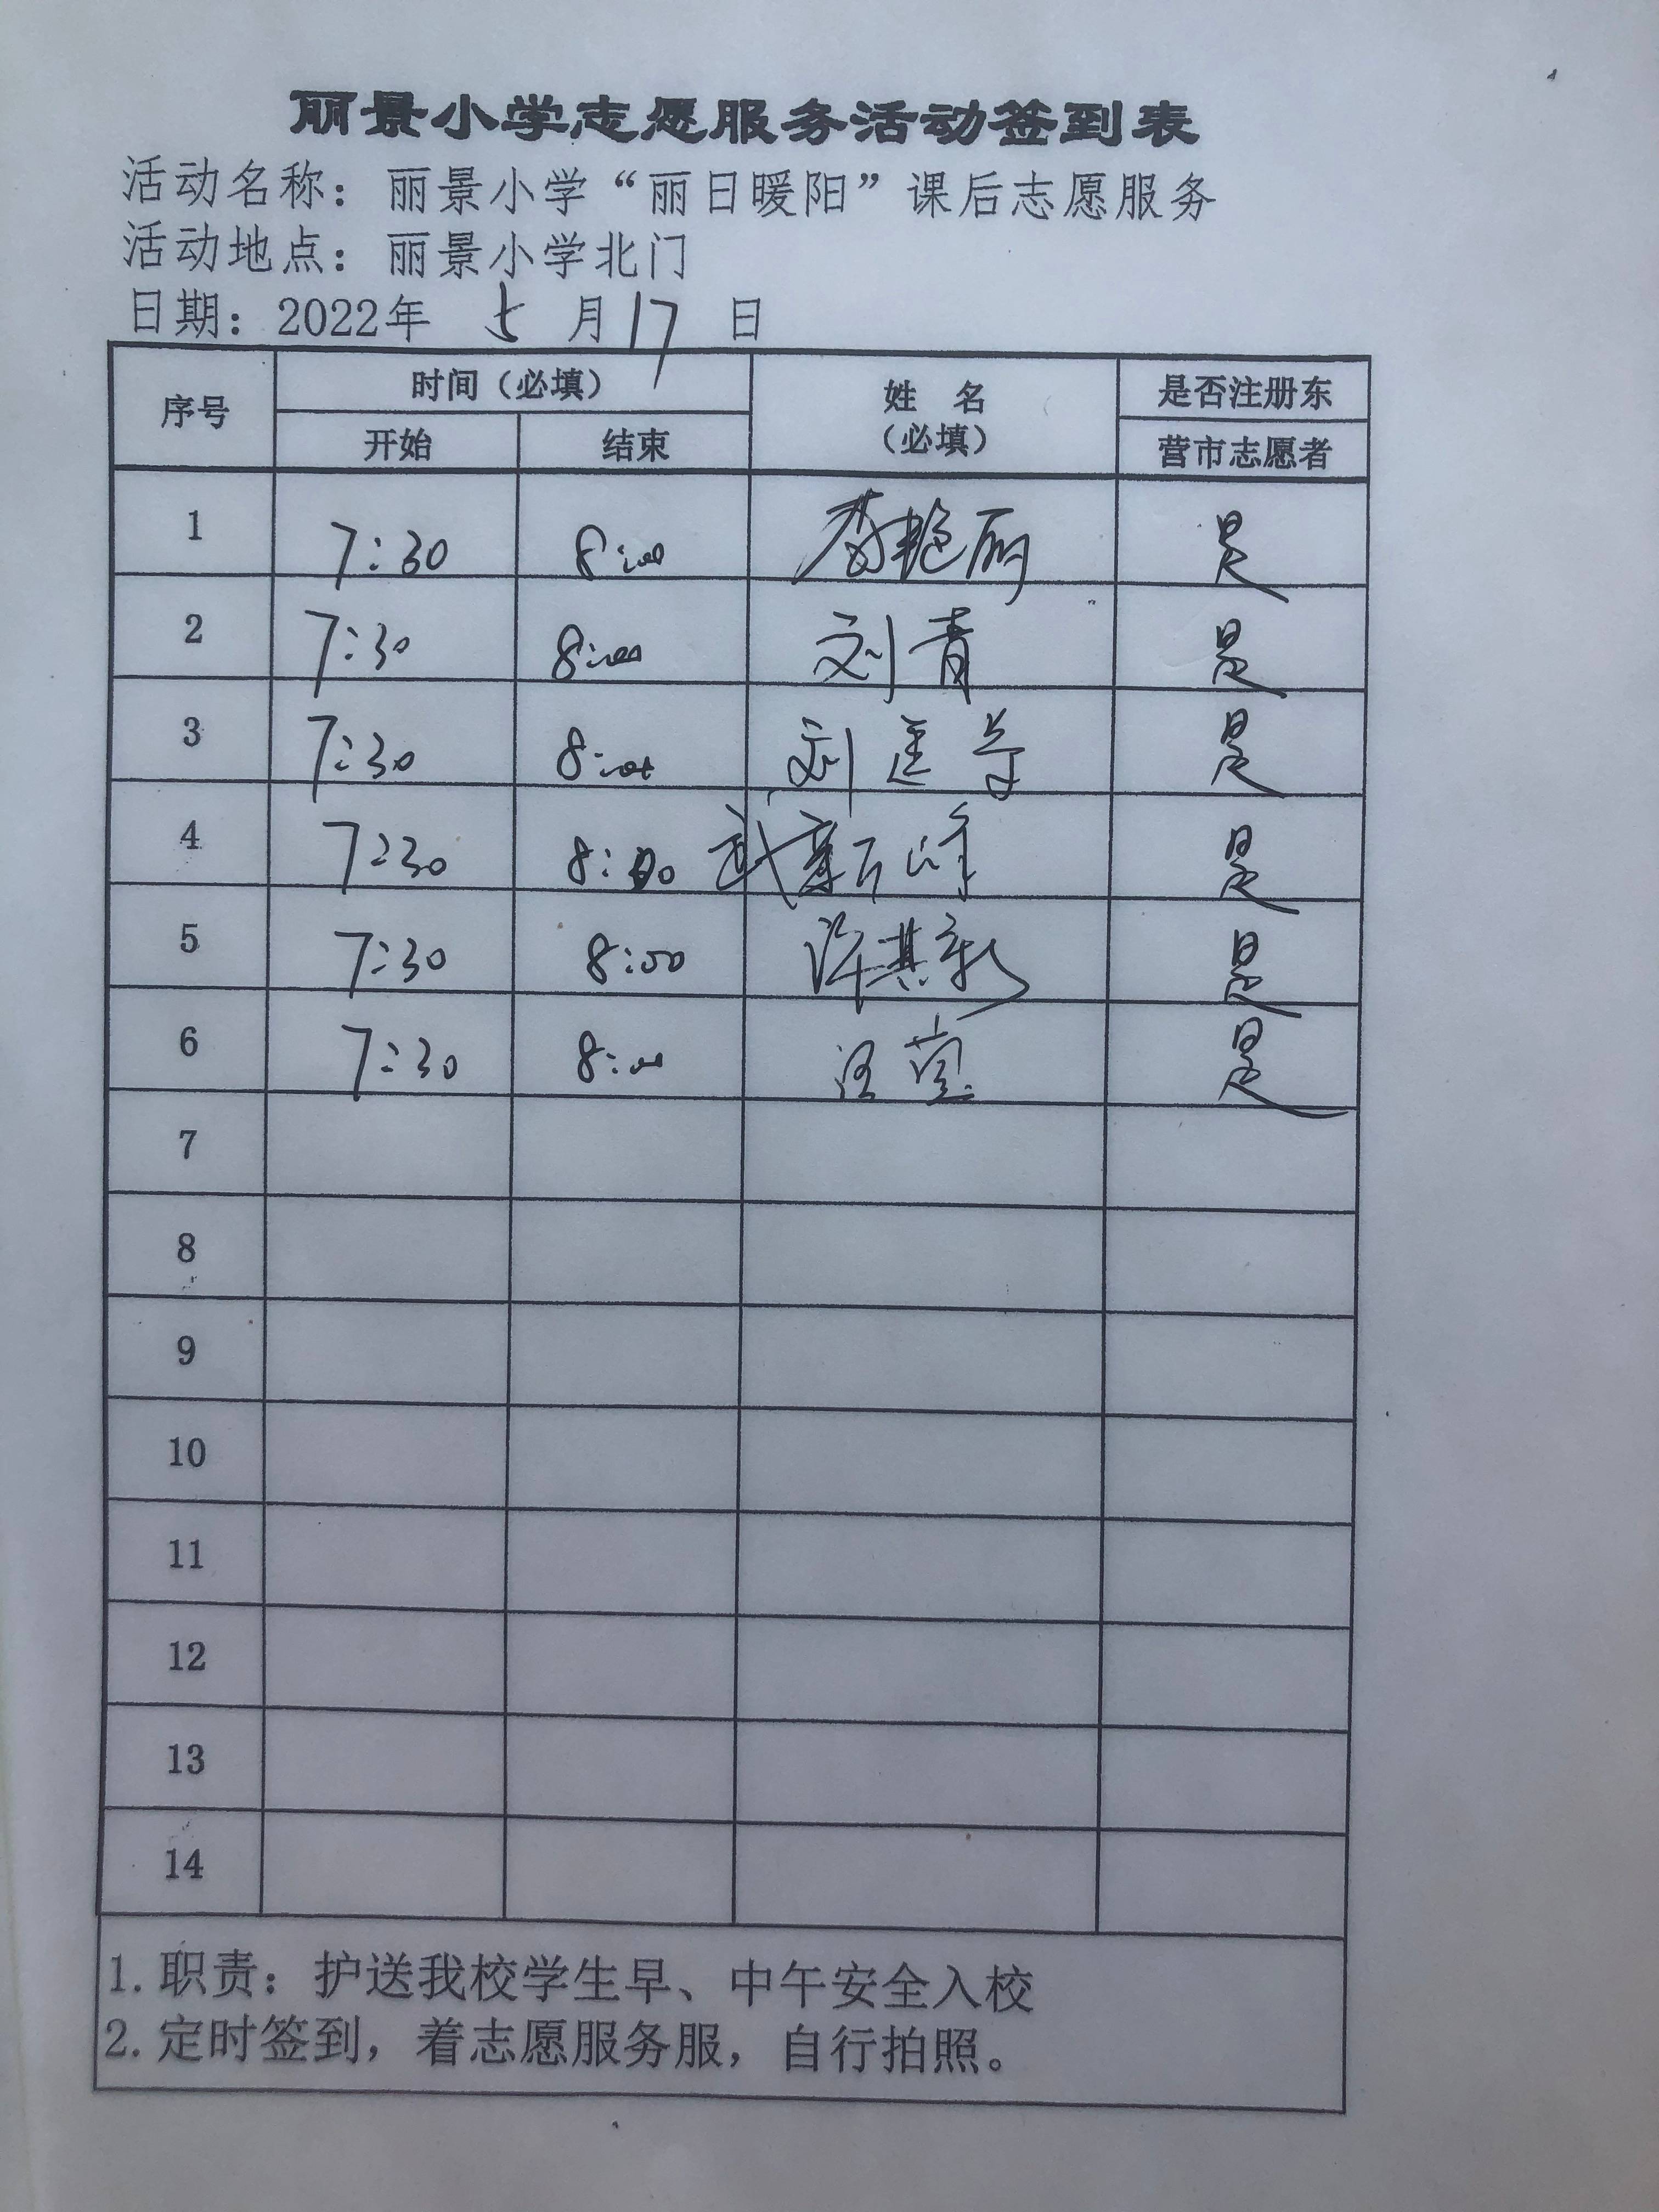 丽景小学志愿服务活动签到表
活动名称：丽景小学“丽日暖阳”课后志愿服务
活动地点：丽景小学北门
日期：2022年 5 月 17 日
序号 时间（必填） 姓 名 （必填） 是否注册东
开始 结束 营市志愿者
1 7:30 8:00 李艳丽 是
2 7:30 8:00 刘青 是
3 7:30 8:00 刘 是
4 7:30 8:00 武 峰 是
5 7:30 8:00 许其新 是
6 7:30 8:00 汪莹 是
7
8
9
10
11
12
13
14
1.职责：护送我校学生早、中午安全入校
2.定时签到，着志愿服务服，自行拍照。